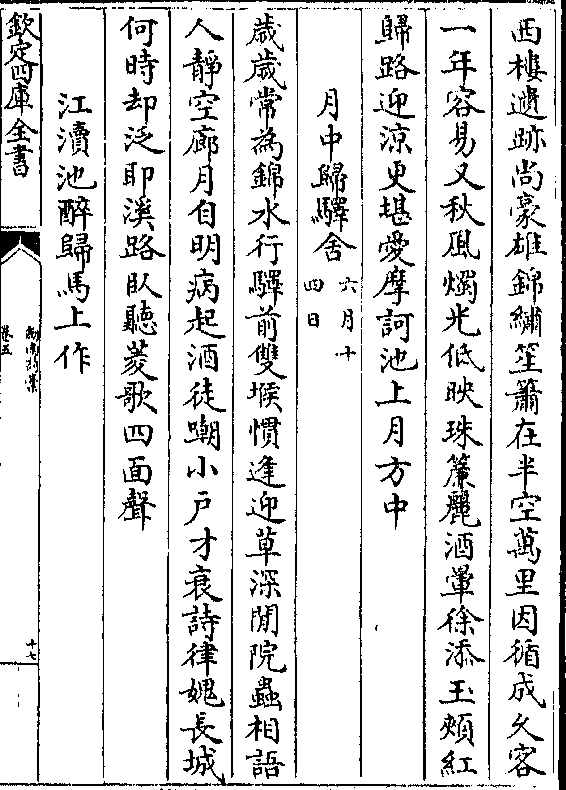 西樓遺跡尚豪雄錦繡笙簫在半空萬里因循成久客
一年容易又秋風燭光低映珠簾麗酒暈徐添玉頰紅
歸路迎涼更堪愛摩訶池上月方中
月中歸驛舍六月十四日
歲歲常為錦水行驛前雙堠慣逢迎草深閒院蟲相語
人靜空廊月自明病起酒徒嘲小戶才衰詩律媿長城
何時却泛耶溪路臥聽菱歌四面聲
江瀆池醉歸馬上作
欽定四庫全書
卷五
十七